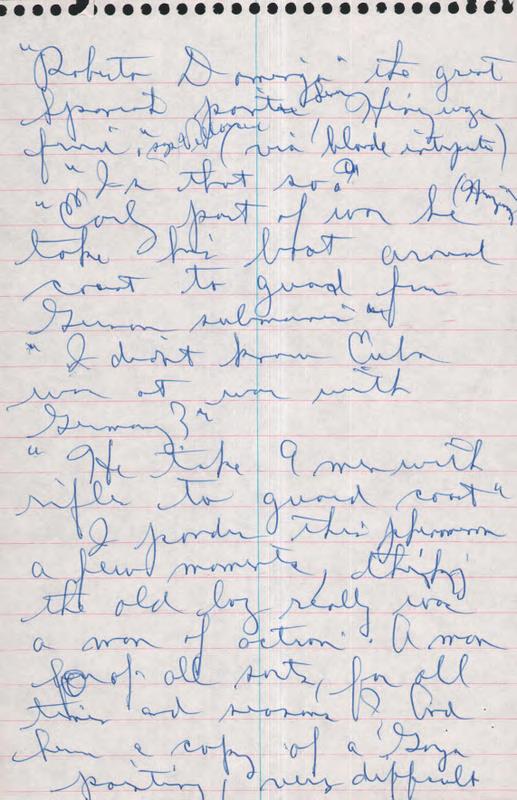 "Roberto Domingo" the great
Spanish painter Hemingway
friend," said Marie (via blonde
"Is that so?"
"Early part of war he (Heming
take his boat around
coast to guard from
German submarine"
"I didn't know Cuba
was at war with
Germany?"
"He take 9 men with
rifle to guard coast"
I ponder this phenomenon
a few moments, thinking
the old boy really was
a man of action. A man
for all sorts, for all
times and seasons. I
him a copy of a Goya
painting, very difficult